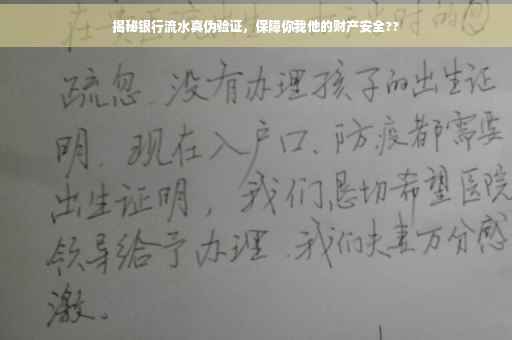 揭秘银行流水真伪验证，保障你我他的财产安全??
疏忽、没有办理孩子的出生证
明、现在入户口、防疫都需要
出生证明，我们恳切希望医院
领导给予办理、我们夫妻万分感
激。